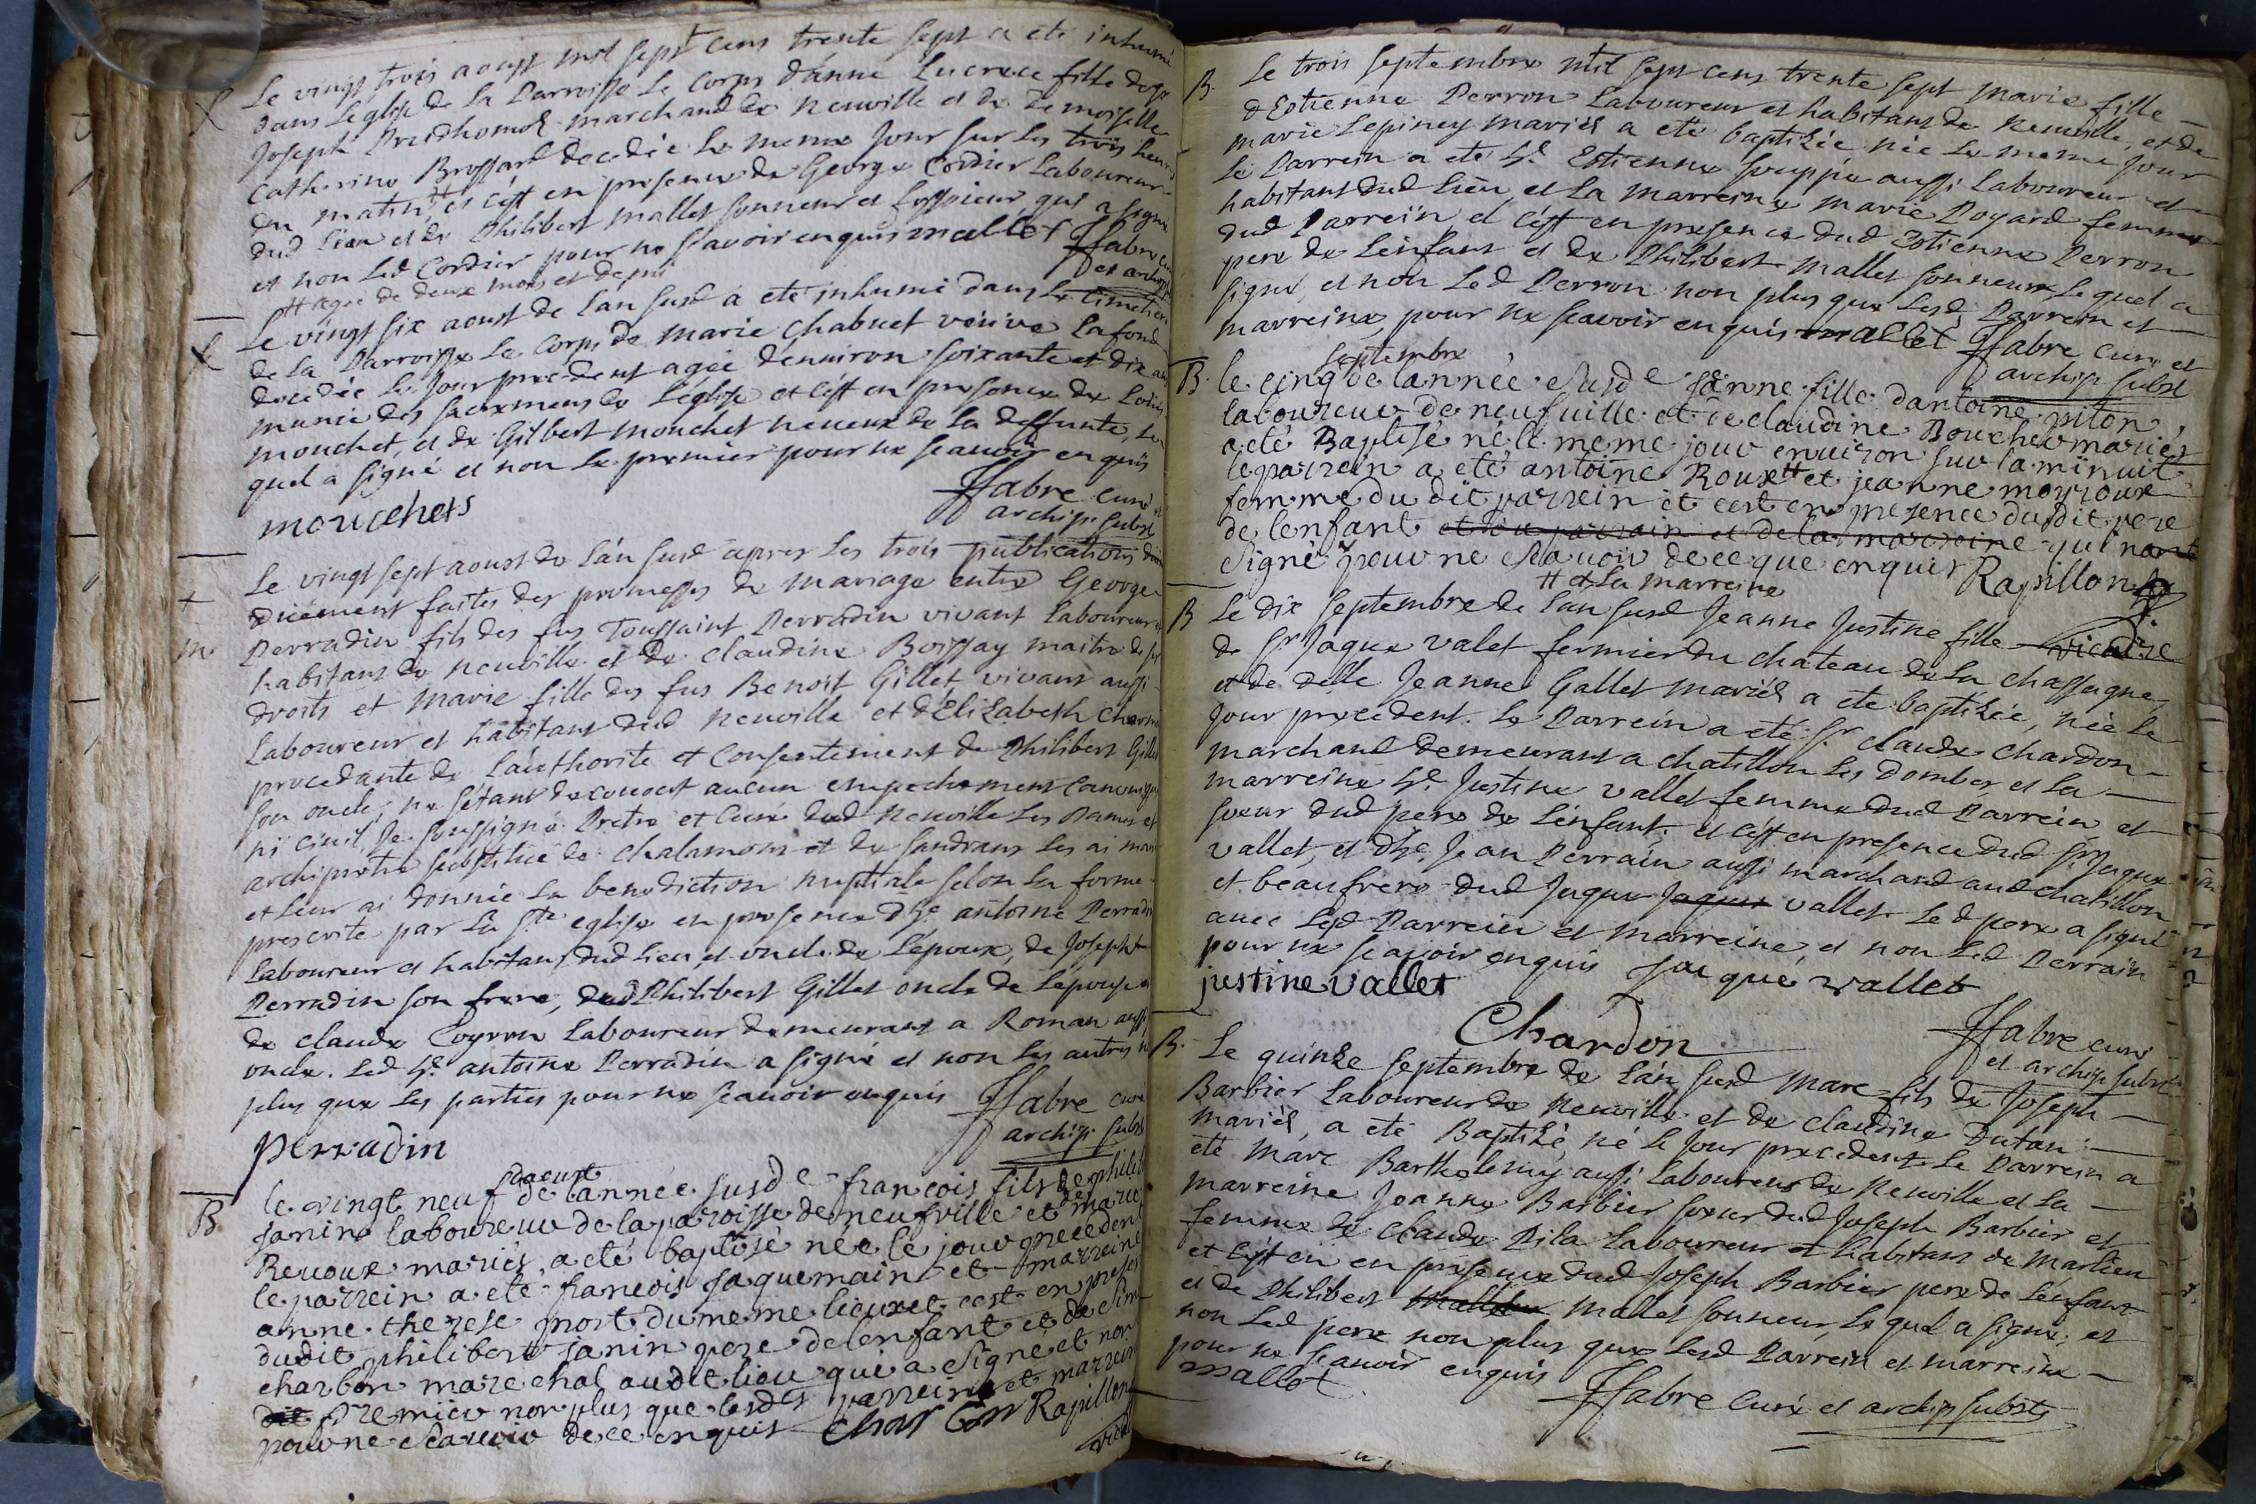 Le vingt trois aoust mil sept cens trente sept a eté inhumé
dans l'eglise de la Parroisse le corps d'anne Lucrece fille de
Joseph Prudhomol marchand de Neuville et de Demoiselle
Catherine Brossard decedée le meme jour sur les trois heures
du matin # et c'est en presence de George Cordier Laboureur
dud lieu et de Philibert Mallet sonneur et fossoieur, qui a signé
et non led Cordier pour ne scavoir enquis mallet ffabre curé
# agée de deux mois et demi et archip.
Le vingt six aoust de l'an susd a eté inhumé dans le cimetiere
de la Parroisse le corps de Marie Chabuet veuive Lafond
decedée le jour precedent agée d'environ soixante et dix ans
munie des sacremens de l'eglise et c'est en presence de Louis
Mouchet, et de Gilbert Mouchet neveux de la deffunte, le
quel a signé et non le premier pour ne scavoir enquis
mouchets ffabre curé et
archip. subst
Le vingt sept aoust de l'an susd apres les trois publications
duement faites des promesses de mariage entre George
Perradin fils des fus Toussaint Perradin vivant laboureur et
habitant de Neuville et de Claudine Boissay maitre de ses
droits et Marie fille des fus Benoit Gillet vivant aussi
laboureur et habitant dud Neuville et d'Elizabeth
procedante de l'authorité et consentement de Philibert Gillet
son oncle, ne s'etant decouvert aucun empechement canonique
ni civil, Je soussigné Pretre et Curé dud Neuville les Dames et
archipretre substitué de Chalamont et de Sandrans les ai mariés
et leur ai donnée la benediction nuptiale selon la forme
prescrite par la Ste eglise en presence d'h.e antoine Perradin
laboureur et habitant dud lieu, et oncle de l'epoux, de Joseph
Perradin son frere, dud Philibert Gillet oncle de l'epouse et
de Claude Coyron laboureur demeurant a Roman aussi
oncle. Led h.e antoine Perradin a signé et non les autres non
plus que les parties pour ne scavoir enquis ffabre curé
perradin archip. subst
d'aoust
B le vingt neuf de lannée susd e francois fils de philibert
janin laboureur de la paroisse de neufville et de marie
Revoux mariés, a eté baptisé née le jour precedent
le parrein a eté francois jaquemain et marreine
anne therese mort du meme lieux et cest en presence
dudit philibert janin pere de lenfant et de
charbon marechal audit lieu qui a signé et non
premier non plus que lesdts parrein et marreine
pour ne scavoir de ce enquis Charbon Rapillon
vicaire
B. Le trois septembre mil sept cens trente sept marie fille
d'Estienne Perron laboureur et habitant de Neuville, et de
marie Lepiney mariés a eté baptisée née le meme jour
le Parrein a eté h.e Estienne Souppé aussi laboureur et
habitant dud lieu et la Marreine marie Poyard femme
dud Parrein et c'est en presence dud Estienne Perron
pere de l'enfant et de Philibert Mallet sonneur lequel a
signé, et non led Perron non plus que lesd Parrein et
marreine, pour ne scavoir enquis mallet ffabre curé et
archip. subst
septembre
B. le cinq de lannée susd e janne fille dantoine piton,
laboureur de neufuille et de claudine Boucher mariés
a eté Baptisé né le meme jour enuiron sur la minuit
le parrein a eté antoine Roux # et jeanne moyroux
femme du dit parrein et cest en presence dudit pere
de lenfant et du parrain et de la marreine qui nont
signé pour ne scavoir de ce que enquis Rapillon
# et la marreine vicaire
B Le dix septembre de l'an susd Jeanne Justine fille
de Sr Jaque Valet fermier du chateau de la Chassagne,
et de delle Jeanne Gallet mariés a eté baptisée, née le
jour precedent. Le Parrein a eté Sr Claude Chardon
marchand demeurant a Chatillon les Dombes et la
marreine h.e Justine Vallet femme dud Parrein et
soeur dud pere de l'enfant, et c'est en presence dud Sr Jaque
vallet, et d'h.e Jean Perrain aussi marchand aud Chatillon
et beaufrere dud Jaque Jaque vallet. Led pere a signé
avec lesd Parrein et Marreine, et non led Perrain
pour ne scavoir enquis jaque vallet
justine vallet
Chardon ffabre curé
et archip. subst
B. Le quinze septembre de l'an susd Marc fils de Joseph
Barbier laboureur de Neuville et de Claudine Dutan
mariés, a eté Baptisé né le jour precedent. Le Parrein a
eté Marc Barthelemy aussi laboureur de Neuville et la
marreine Jeanne Barbier soeur dud Joseph Barbier et
femme de Claude Pila laboureur et habitant de Marlieu
et c'est en en presence dud Joseph Barbier pere de l'enfant
et de Philibert Mallet sonneur, le quel a signé, et
non led pere non plus que lesd Parrein et marreine
pour ne scavoir enquis
mallet ffabre curé et archip. subst